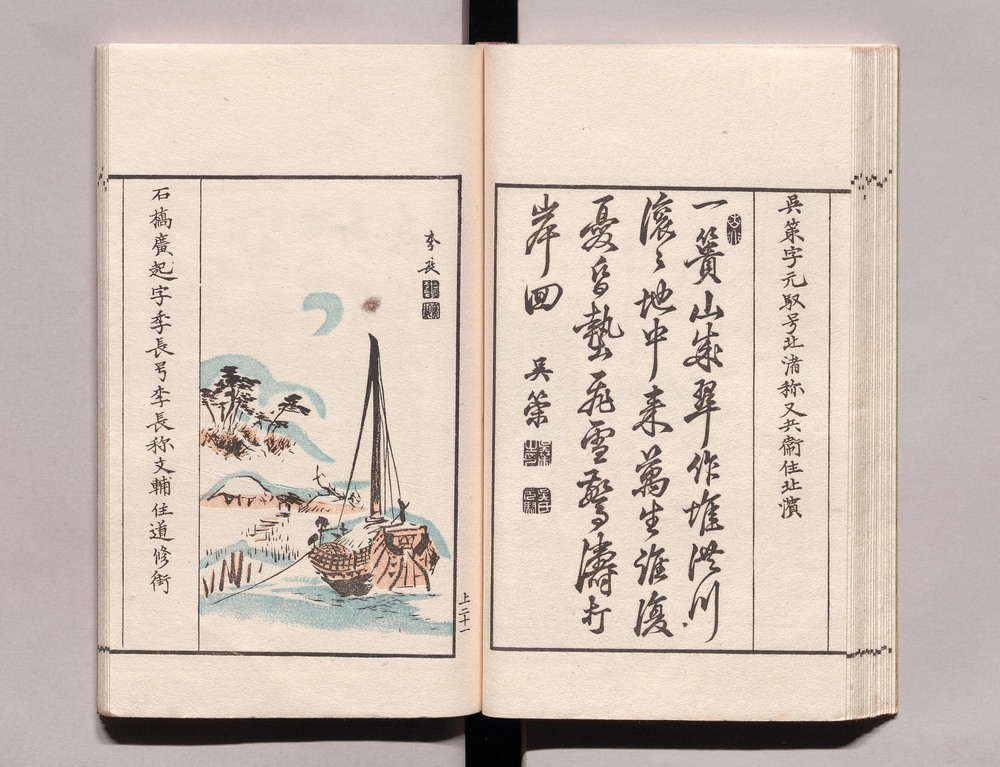 吳策字元馭号北渚称又兵衞住北濱
一簣山成翠作堆洪川
滾〻地中来萬生誰復
憂昏墊飛雪驚濤打
岸囬
吳策
上二十一
李長
石橋廣起字季長号李長称文輔住道修街